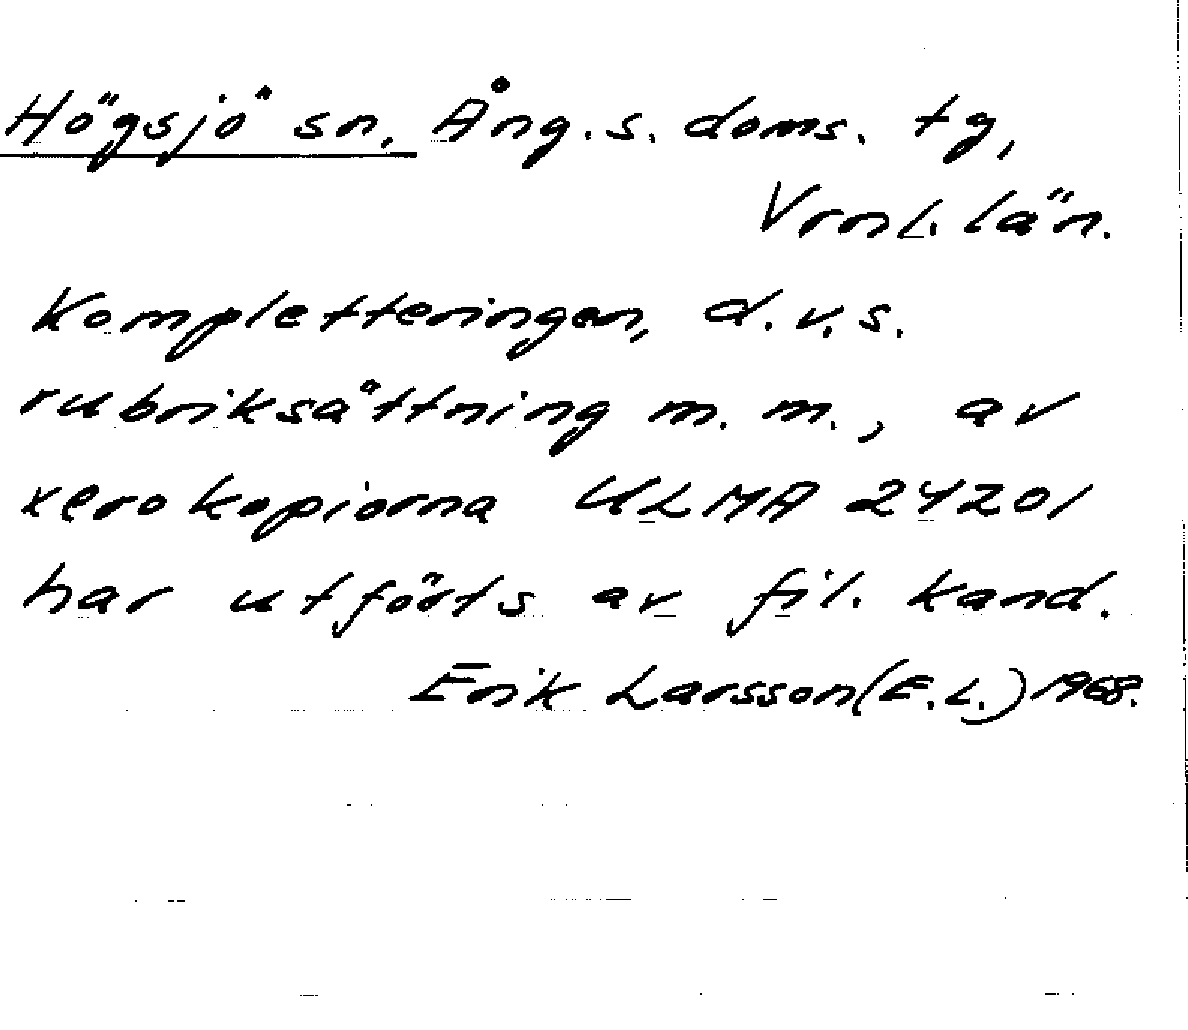 Högsjö sn, Ång. s. doms. tg,
Vrnl. län.
Kompletteringen, d.v.s.
rubriksåttning m. m., av
xerokopiorna ULMA 24201
har utförts av fil. kand.
Erik Larsson (E.L.) 1968.